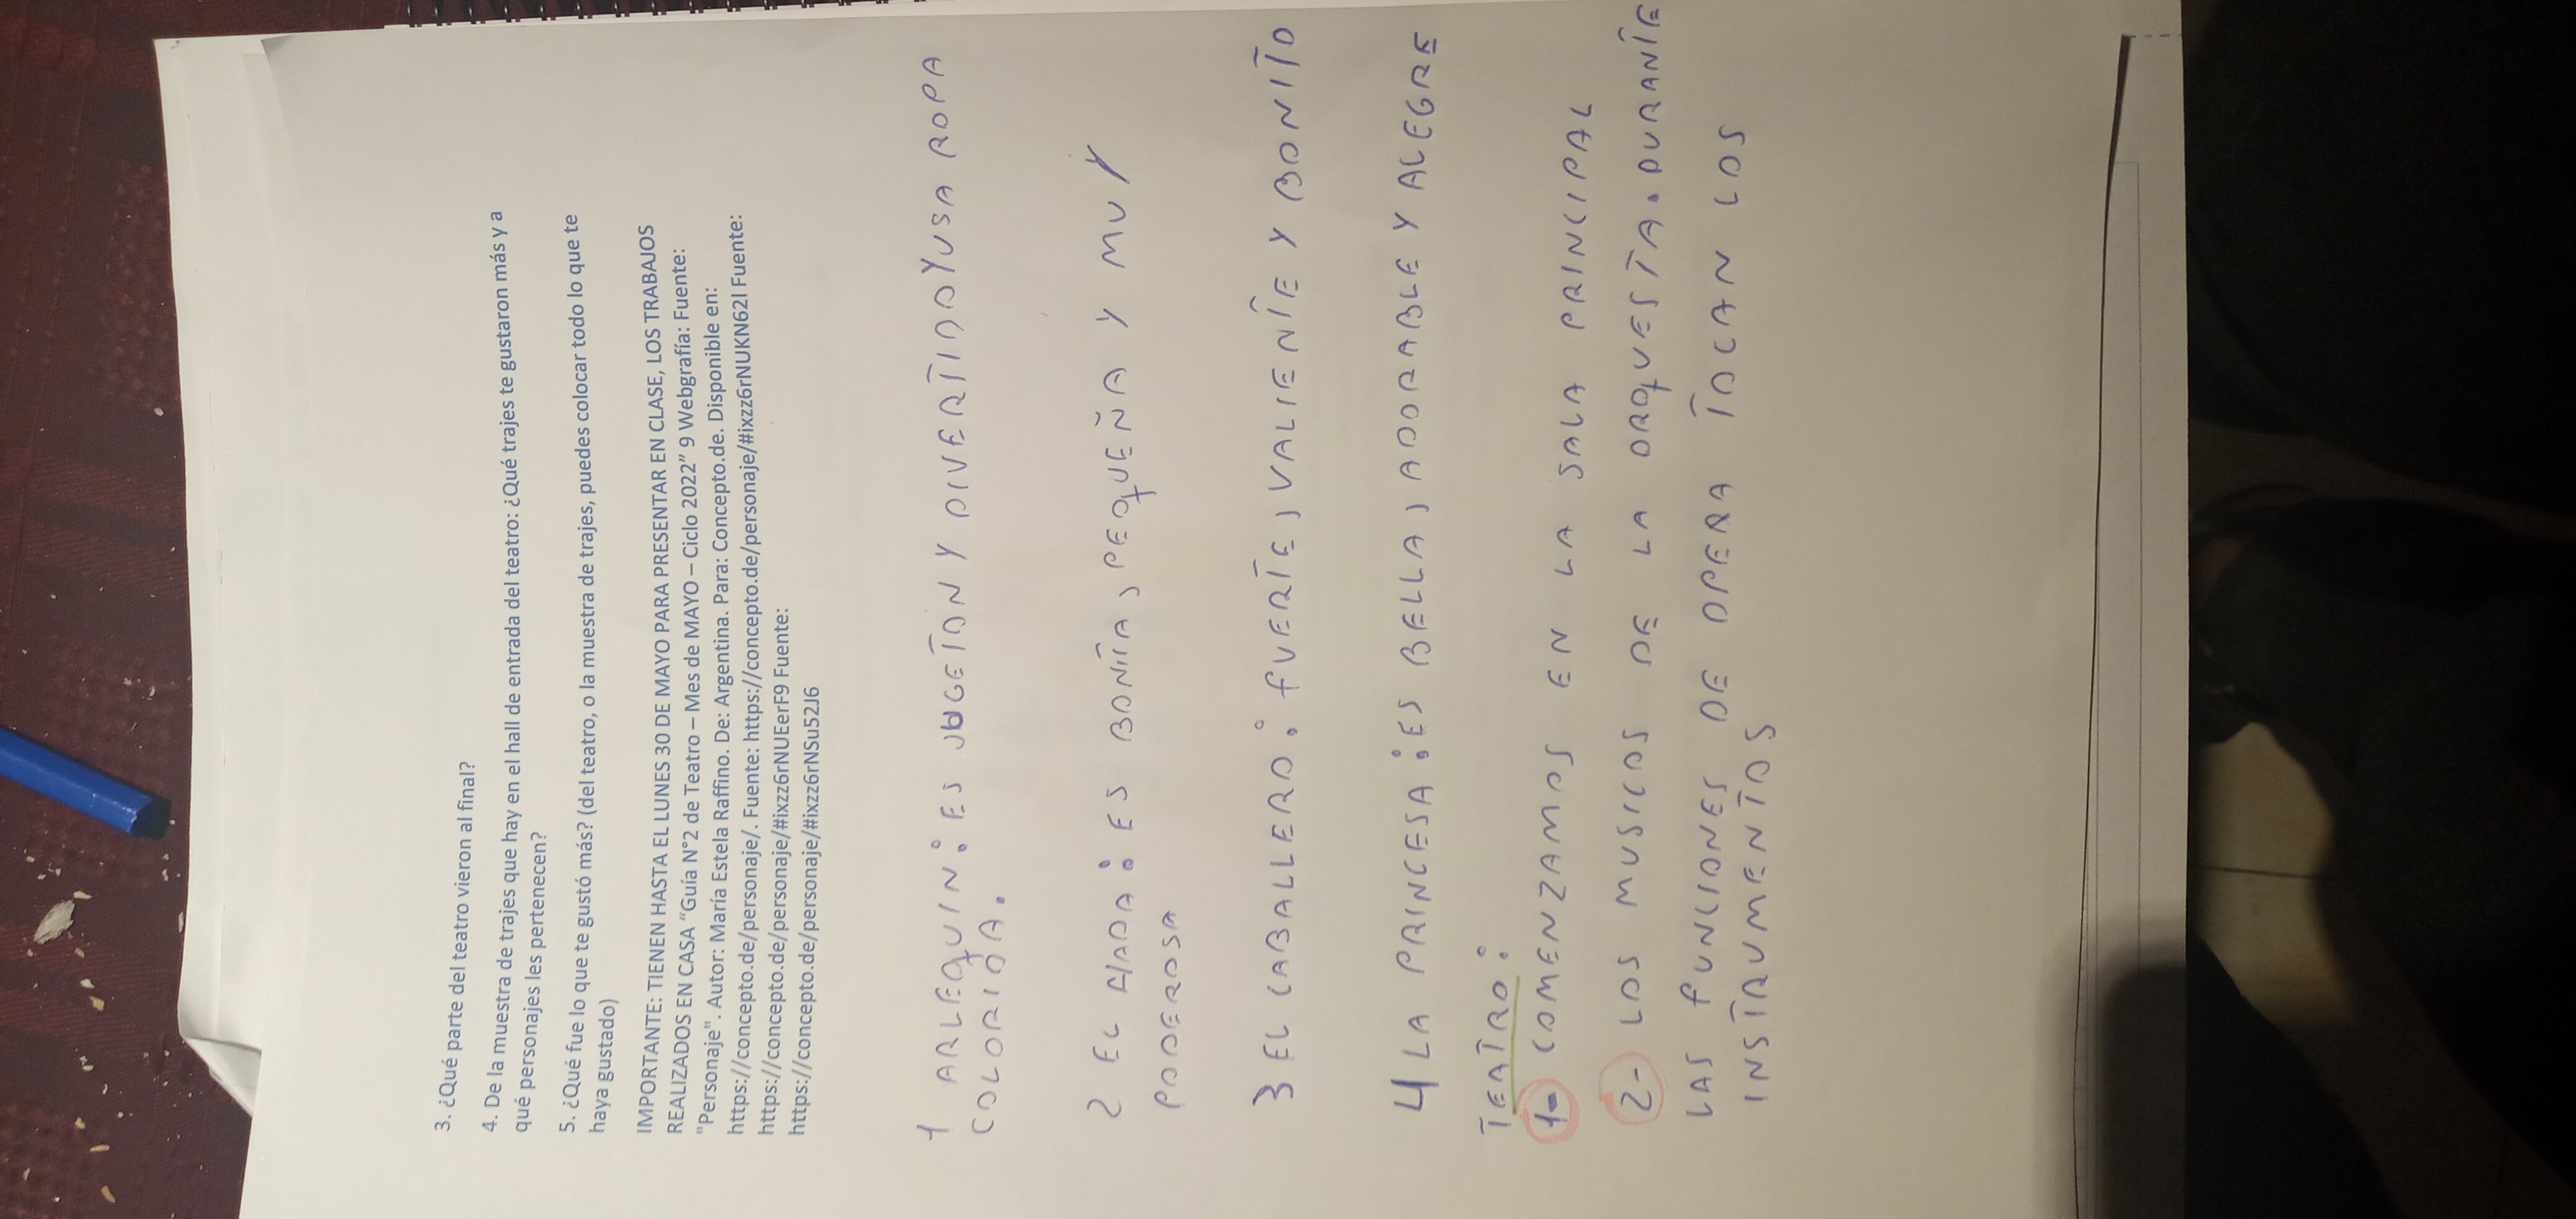 3. ¿Qué parte del teatro vieron al final?
4. De la muestra de trajes que hay en el hall de entrada del teatro: ¿Qué trajes te gustaron más y a
qué personajes les pertenecen?
5. ¿Qué fue lo que te gustó más? (del teatro, o la muestra de trajes, puedes colocar todo lo que te
haya gustado)
IMPORTANTE: TIENEN HASTA EL LUNES 30 DE MAYO PARA PRESENTAR EN CLASE, LOS TRABAJOS
REALIZADOS EN CASA "Guía N°2 de Teatro – Mes de MAYO – Ciclo 2022" 9 Webgrafía: Fuente:
"Personaje". Autor: María Estela Raffino. De: Argentina. Para: Concepto.de. Disponible en:
https://concepto.de/personaje/. Fuente: https://concepto.de/personaje/#ixzz6rNUKN62l Fuente:
https://concepto.de/personaje/#ixzz6rNUEerF9 Fuente:
https://concepto.de/personaje/#ixzz6rNSu52J6
1 ARLEQUIN: ES JUGETON Y DIVERTIDO Y USA ROPA
COLORIDA.
2 EL HADA: ES BONITA, PEQUEÑA Y MUY
PODEROSA
3 EL CABALLERO: FUERTE, VALIENTE Y BONITO
4 LA PRINCESA: ES BELLA, ADORABLE Y ALEGRE
TEATRO:
1- COMENZAMOS EN LA SALA PRINCIPAL
2- LOS MUSICOS DE LA ORQUESTA. DURANTE
LAS FUNCIONES DE OPERA TOCAN LOS
INSTRUMENTOS